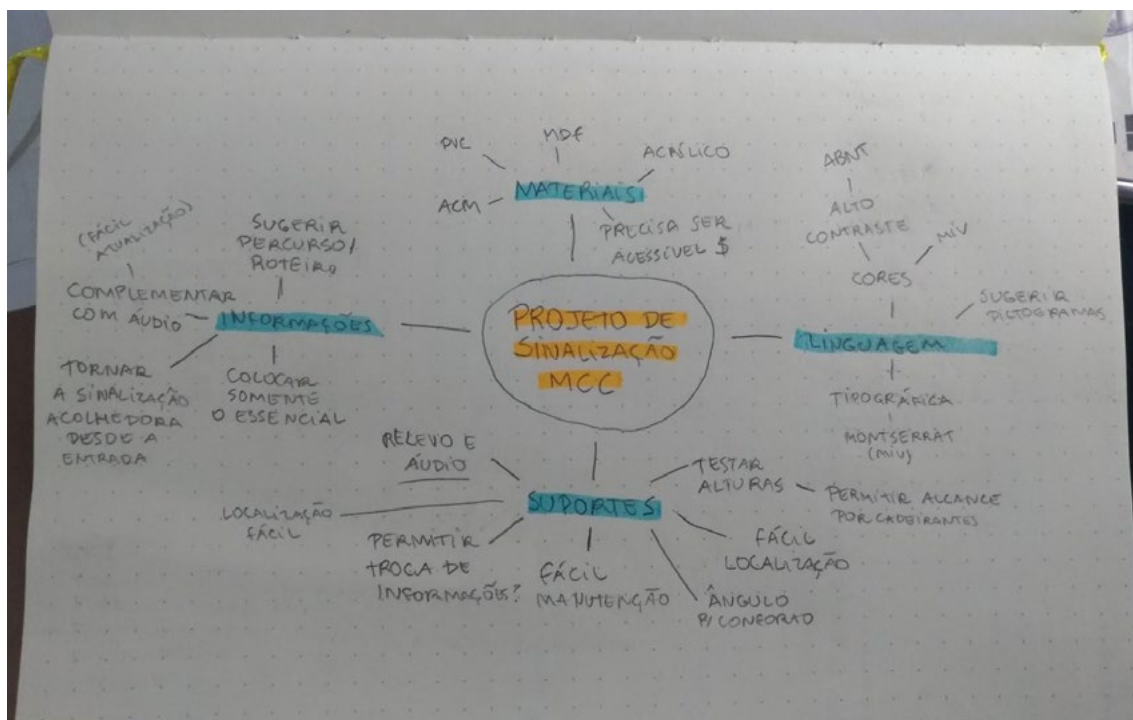 PROJETO DE
SINALIZAÇÃO
MCC
MATERIAIS
PVC
MDF
ACRÍLICO
ACM
PRECISA SER
ACESSÍVEL $
LINGUAGEM
CORES
ALTO
CONTRASTE
ABNT
MIV
SUGERIR
PICTOGRAMAS
TIPOGRÁFICA
MONTSERRAT
(MIV)
INFORMAÇÕES
SUGERIR
PERCURSO/
ROTEIRO
(FÁCIL
ATUALIZAÇÃO)
COMPLEMENTAR
COM ÁUDIO
TORNAR
A SINALIZAÇÃO
ACOLHEDORA
DESDE A
ENTRADA
COLOCAR
SOMENTE
O ESSENCIAL
SUPORTES
RELEVO E
ÁUDIO
LOCALIZAÇÃO
FÁCIL
PERMITIR
TROCA DE
INFORMAÇÕES?
FÁCIL
MANUTENÇÃO
ÂNGULO
P/
FÁCIL
LOCALIZAÇÃO
TESTAR
ALTURAS
PERMITIR ALCANCE
POR CADEIRANTES